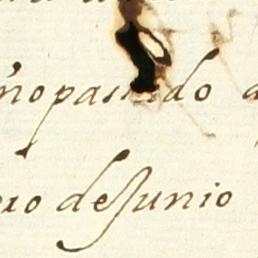 ño passado a
ro de Junio